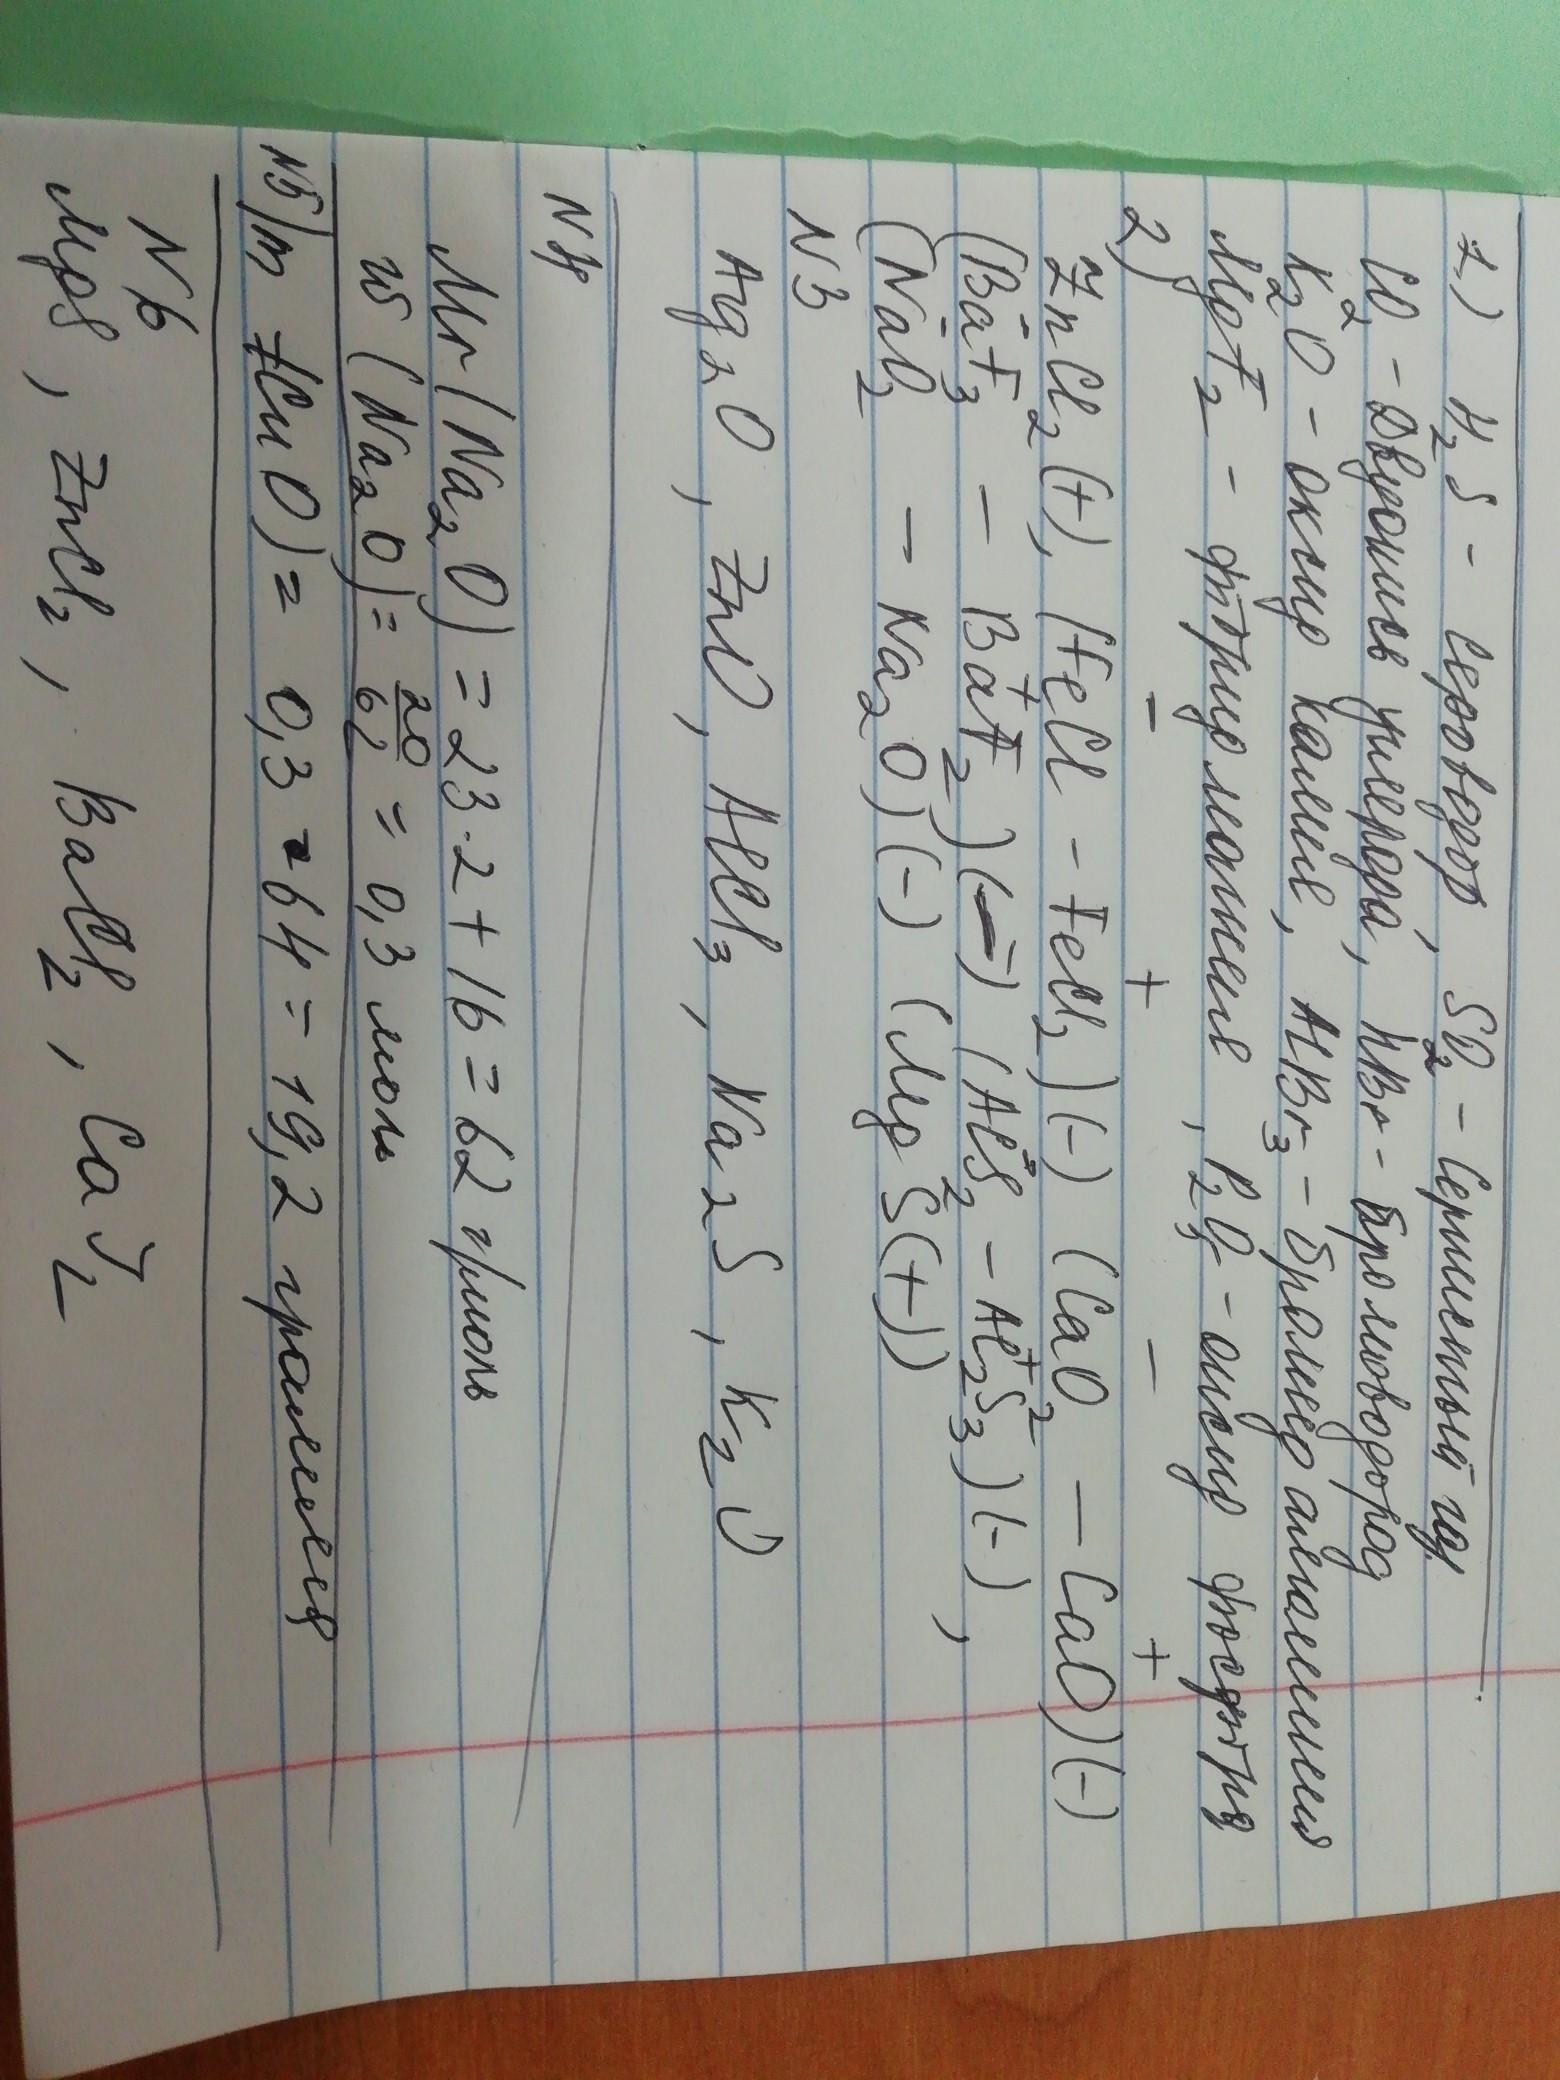 1.) H2S - Сероводор, SO2 - Сернистый газ.
CO2 - Двуокись углерода, HBr - Бромоводород
K2O - оксид калия, AlBr3 - бромид алюминия
MgF2 - фторид магния, P2O5 - оксид фосфтра
2) - + - +
ZnCl2(+), (FeCl - FeCl2)(-) (CaO2 - CaO)(-)
(BaF3 - BaF2)(-) (AlS2 - Al2S3)(-),
(NaO2 - Na2O)(-) (MgS(+))
N3
Ag2O, ZnO, AlCl3, Na2S, K2O
N4
Mr(Na2O) = 23·2 + 16 = 62 г/моль
ν(Na2O) = 20/62 = 0,3 моль
N5) m (CuO) = 0,3 · 64 = 19,2 грамма
N6
MgS, ZnCl2, BaCl2, CaJ2